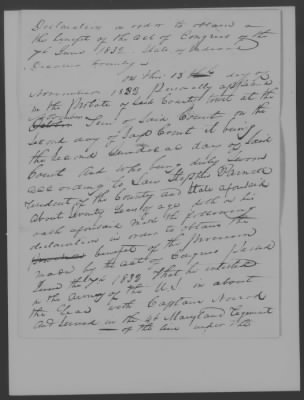 Declaration in order to obtain
the benefit of the act of Congress of the
7th June 1832. State of Indiana
County
on this 13th day of
November 1832 personally appeared
in the Probate of said Court at the
Term of said Court on the
second day of said Court it being
the second day of said
Court and who being duly sworn
according to Law Stephen
resident of the County and State aforesaid
about Seventy years of age doth on his
oath aforesaid make the following
declaration in order to obtain the
benefit of the provision
made by the act of Congress passed
June the 7th 1832 that he entered
in the army of the U.S. in about
the year with Captain
and served in the 4th Maryland Regiment
of the line under the